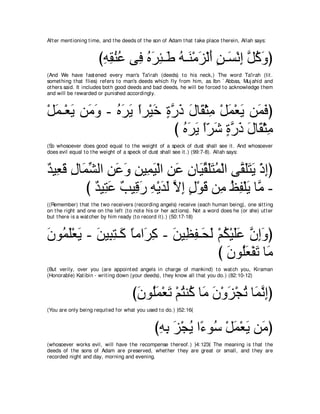 After mentioning time, and the deeds of the son of Adam that take place therein, Allah says:
(وَكُلَّ إِنْسَـنٍ أَلْزَمْنَـهُ طَـئِرَهُ فِى عُنُقِهِ)
(And We have fastened every man's Ta'irah (deeds) to his neck,) The word Ta'irah (lit. something that flies) refers to man's deeds which fly from him, as Ibn `Abbas, Mujahid and others said. It includes both good deeds and bad deeds, he will be forced to acknowledge them and will be rewarded or punished accordingly.
(فَمَن يَعْمَلْ مِثْقَالَ ذَرَّةٍ خَيْراً يَرَهُ - وَمَن يَعْـمَلْ
مِثْقَالَ ذَرَّةٍ شَرّاً يَرَهُ )
(So whosoever does good equal to the weight of a speck of dust shall see it. And whosoever does evil equal to the weight of a speck of dust shall see it.) (99:7-8). Allah says:
(إِذْ يَتَلَقَّى الْمُتَلَقِّيَانِ عَنِ الْيَمِينِ وَعَنِ الشِّمَالِ قَعِيدٌ
- مَّا يَلْفِظُ مِن قَوْلٍ إِلاَّ لَدَيْهِ رَقِيبٌ عَتِيدٌ )
((Remember) that the two receivers (recording angels) receive (each human being), one sitting on the right and one on the left (to note his or her actions). Not a word does he (or she) utter but there is a watcher by him ready (to record it).) (50:17-18)
(وَإِنَّ عَلَيْكُمْ لَحَـفِظِينَ - كِرَاماً كَـتِبِينَ - يَعْلَمُونَ
مَا تَفْعَلُونَ )
(But verily, over you (are appointed angels in charge of mankind) to watch you, Kiraman (Honorable) Katibin - writing down (your deeds), they know all that you do.) (82:10-12)
(إِنَّمَا تُجْزَوْنَ مَا كُنتُمْ تَعْمَلُونَ)
(You are only being requited for what you used to do.) (52:16(
(مَن يَعْمَلْ سُوءًا يُجْزَ بِهِ)
(whosoever works evil, will have the recompense thereof.) )4:123( The meaning is that the deeds of the sons of Adam are preserved, whether they are great or small, and they are recorded night and day, morning and evening.